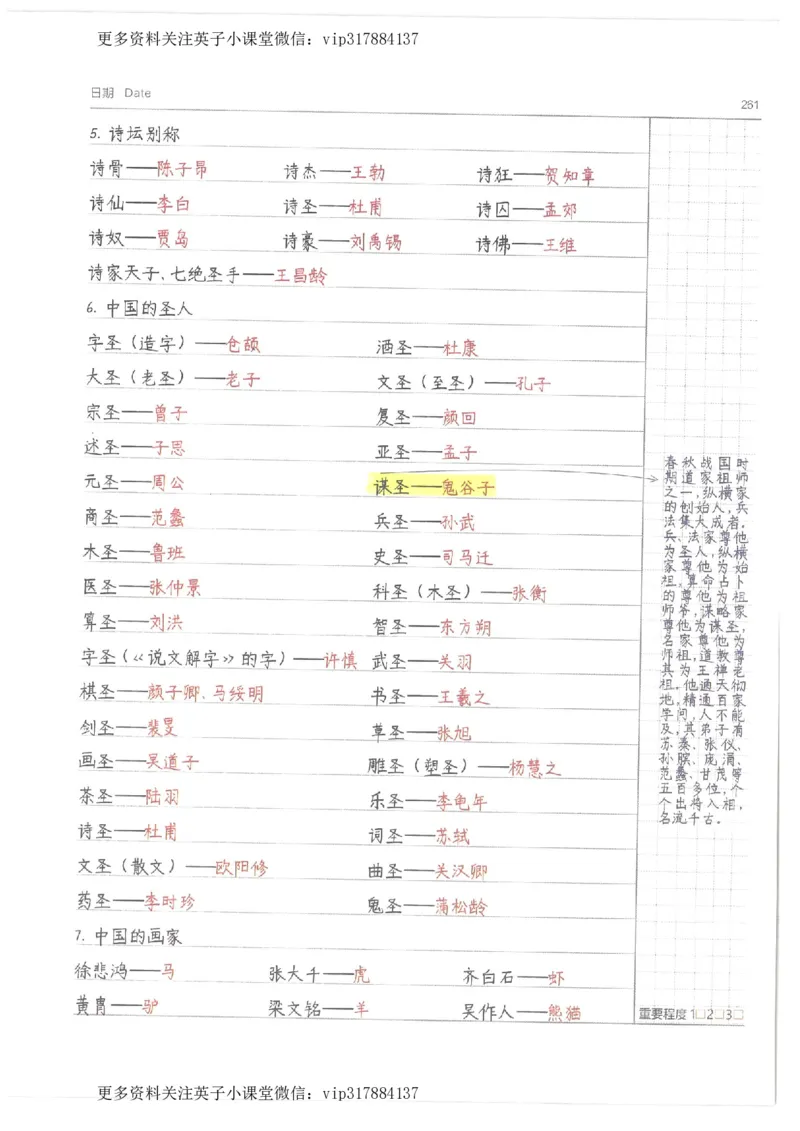 更多资料关注英子小课堂微信：vip317884137
日期 Date
261
5. 诗坛别称
诗骨——陈子昂 诗杰——王勃 诗狂——贺知章
诗仙——李白 诗圣——杜甫 诗囚——孟郊
诗奴——贾岛 诗豪——刘禹锡 诗佛——王维
诗家天子、七绝圣手——王昌龄
6. 中国的圣人
字圣（造字）——仓颉 酒圣——杜康
大圣（老圣）——老子 文圣（至圣）——孔子
宗圣——曾子 复圣——颜回
述圣——子思 亚圣——孟子
元圣——周公 谋圣——鬼谷子
商圣——范蠡 兵圣——孙武
木圣——鲁班 史圣——司马迁
医圣——张仲景 科圣（木圣）——张衡
算圣——刘洪 智圣——东方朔
字圣（《说文解字》的字）——许慎 武圣——关羽
棋圣——颜子卿、马绥明 书圣——王羲之
剑圣——裴旻 草圣——张旭
画圣——吴道子 雕圣（塑圣）——杨慧之
茶圣——陆羽 乐圣——李龟年
诗圣——杜甫 词圣——苏轼
文圣（散文）——欧阳修 曲圣——关汉卿
药圣——李时珍 鬼圣——蒲松龄
7. 中国的画家
徐悲鸿——马 张大千——虎 齐白石——虾
黄胄——驴 梁文铭——羊 吴作人——熊猫
春秋战国时
期道家祖师
之一，纵横家
的创始人，兵
法集大成者。
兵、法家尊他
为圣人，纵横
家尊他为始
祖，算命占卜
的尊他为祖
师爷，谋略家
尊他为谋圣，
名家尊他为
师祖，道教尊
其为王禅老
祖。他通天彻
地，精通百家
学问，人不能
及，其弟子有
苏秦、张仪、
孙膑、庞涓、
范蠡、甘茂等
五百多位，个
个出将入相，
名流千古。
重要程度 1□2□3□
更多资料关注英子小课堂微信：vip317884137